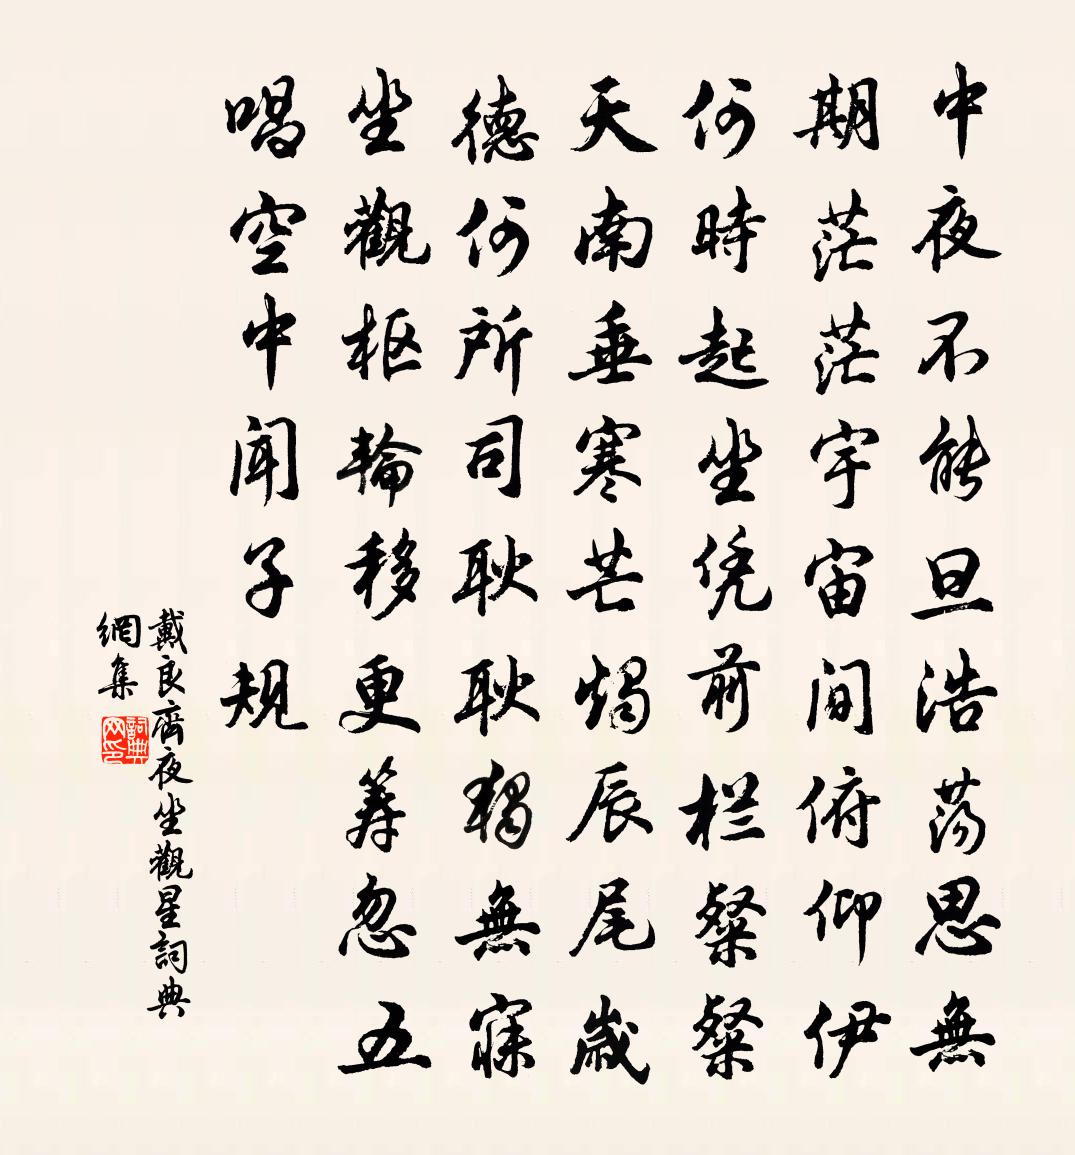 中夜不能旦浩荡思無
期茫茫宇宙间俯仰伊
何時起坐凭前栏粲粲
天南垂寒芒烛辰尾歲
德何所司耿耿獨無寐
坐觀枢輪移更筹忽五
唱空中闻子规
戴良齊夜坐觀星詞典
網集
詞典网印